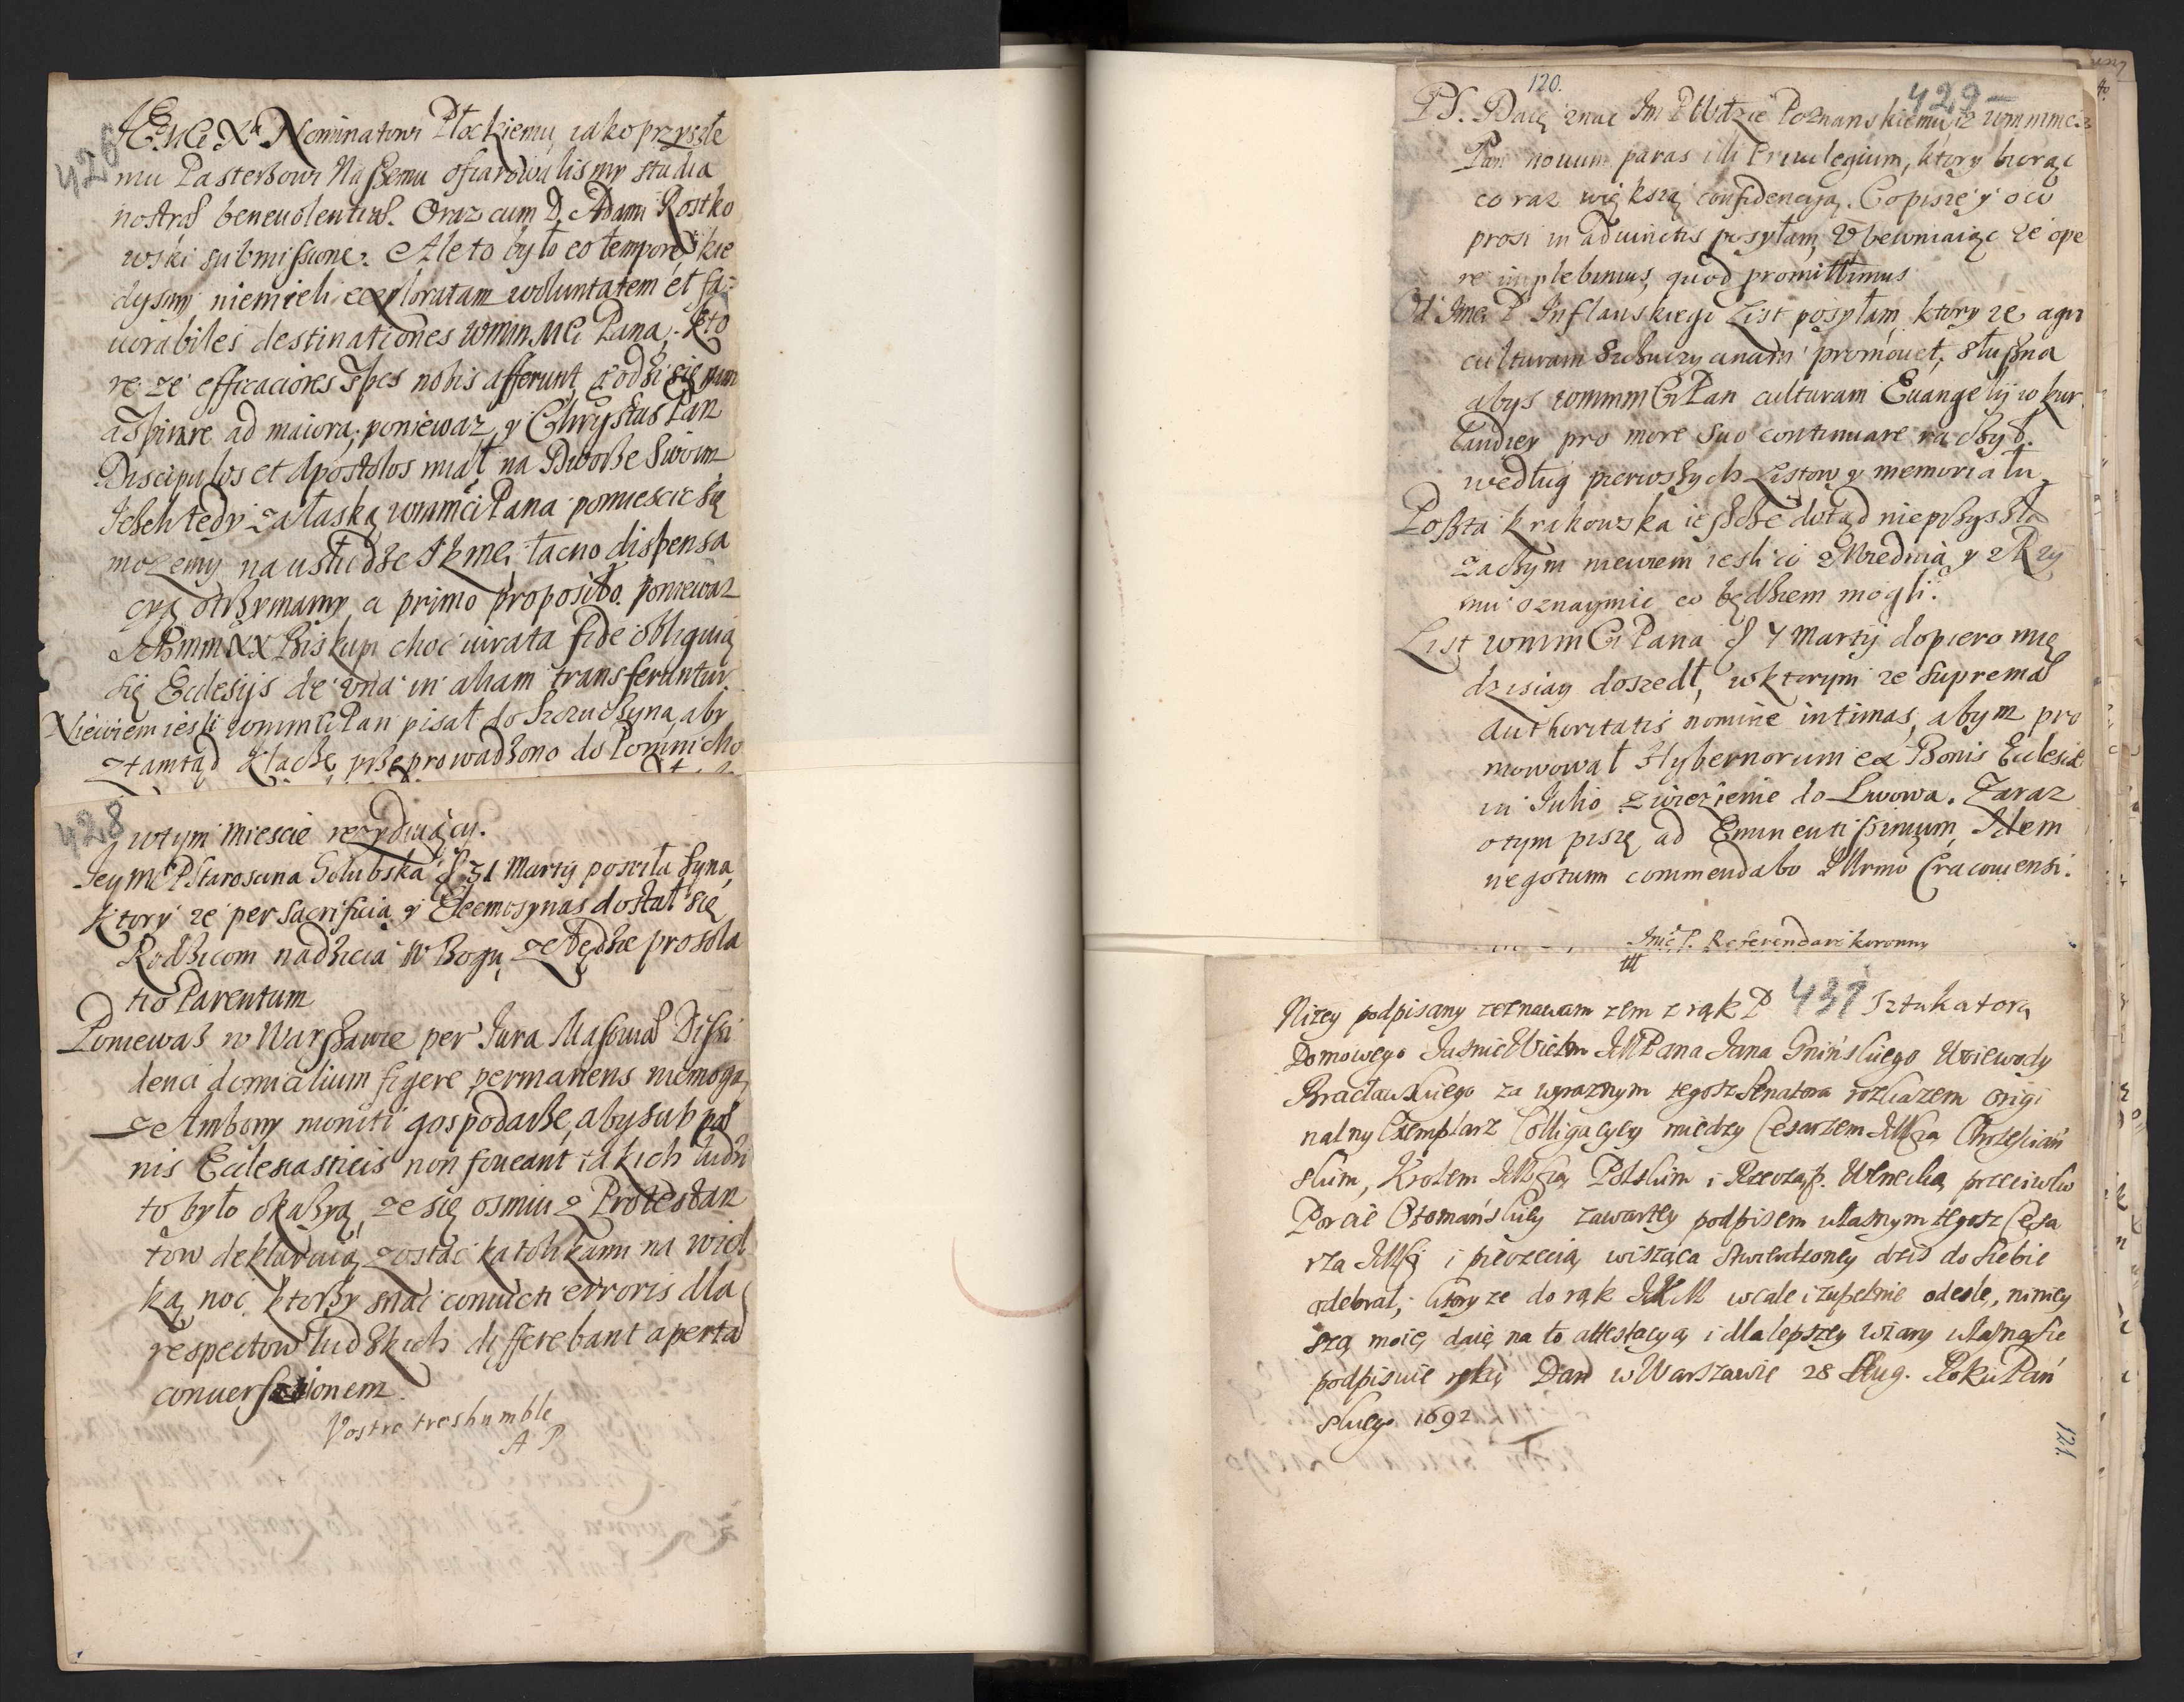 426
JEoMci Xu Nominatowi Płockiemu, iako przyszłe
mu Pasterzowi Naszemu ofiarowalismy studia
nostras beneuolentias. Oraz cum D. Adami Rostko
wski submissione. Ale to było eo tempore, kie
dysmy niemieli exploratam woluntatem et fa:
uorabiles destinationes wmm Mci Pana, Kto
re ze efficaciores spes nobis afferunt, godzi się nam
aspirare ad maiora, poniewaz y Chrystus Pan
Discipulos et Apostolos miał na Dworze Swoim
Iesli tedy za łaską wmmci Pana pomiescic się
mozemy na usłudze Ikmci, łacno dispensa
cyą otrzymamy a primo proposito. poniewaz
XX Biskupi choc iurata fide obliguią
się Ecclesijs de una in aliam transferuntur
Niewiem iesli wmmCi Pan pisał do Szczuczyna, aby
ztamtąd przeprowadzono do
428
w tym miescie rezyduiący.
Iey Mc P Starościna Golubska d 31 Martij powiła Syna,
ktory ze per Sacrificia y Eleemosynas dostał się
Rodzicom nadzieia w Bogu, ze będzie pro sola
tio Parentum
Poniewaz w Warszawie per Iura Masouiae Dissi
denci domicilium figere permanens niemogą,
ze Ambony moniti gospodarze, aby sub pae
nis Ecclesiasticis non foueant takich ludzi
to było okazyą, ze się osmiu z Protestan
tow deklaruią zostac katolikami na wiel
ką noc, ktorzy snac conuicti erroris dla
respectow ludzkich differebant aperta
conuersionem.
Vostre tres humble
A P
120.
429
PS. Daię znac Im P Wdzie Poznanskiemu, iz wmmmci
Pan nouum paras illi Priuilegium, ktory biorąc
co raz większą confidencyą. Co pisze y o co
prosi in aduinctis posyłam, Vpewniaiąc ze ope
re implebimus, quod promittimus
Od Imci P Inflanskiego List posyłam, ktory ze agri
culturam Szczuczynanam promouet, słuszna
abys wmmmCi Pan culturam Euangelij w kur
landiey pro more suo continuare raczył.
według pierwszych Listow y memoriału.
Poszta krakowska ieszcze dotąd nieprzyszła
zaczym niewiem iesli co z Wiednia y z Rzy
mu oznaymic co będziem mogli.
List wmmCi Pana d 7 Martij dopiero mię
dzisiay doszedł, w ktorym ze Supremae
Authoritatis nomine intimas, abym pro
mowował Hybernorum ex Bonis Ecclesiae
in Julio zwiezienie do Lwowa. Zaraz
o tym piszę ad Eminentissimum, Idem
negotium commendabo Illrmo Cracouiensi.
Imć P. Referendarz koronny
431
Nizey podpisany zeznawam zem z rąk P Sztukatora
Domowego Jasnie Wielm JMPana Jana Gnińskiego Woiewody
Bracławskiego za wyraznym tegosz Senatora rozkazem origi
nalny Exemplarz Colligacycy między Cesarzem JMścią Chrześciań
skim, Krolem JMścią Polskim i Rzecząp. Wenecką przeciwko
Porcie Otomańskiey zawartey podpisem własnym tegosz Cesa
rza JMści i pieczecią wisząca stwierdzoney dzis do siebie
odebrał, ktory ze do rąk JKM wcale i zupełnie odesle, niniey
szą moię daię na to attestacyą i dla lepszey wiary własną się
podpisuie ręką Dan w Warszawie 28 Aug. Roku Pań
skiego 1692
121.